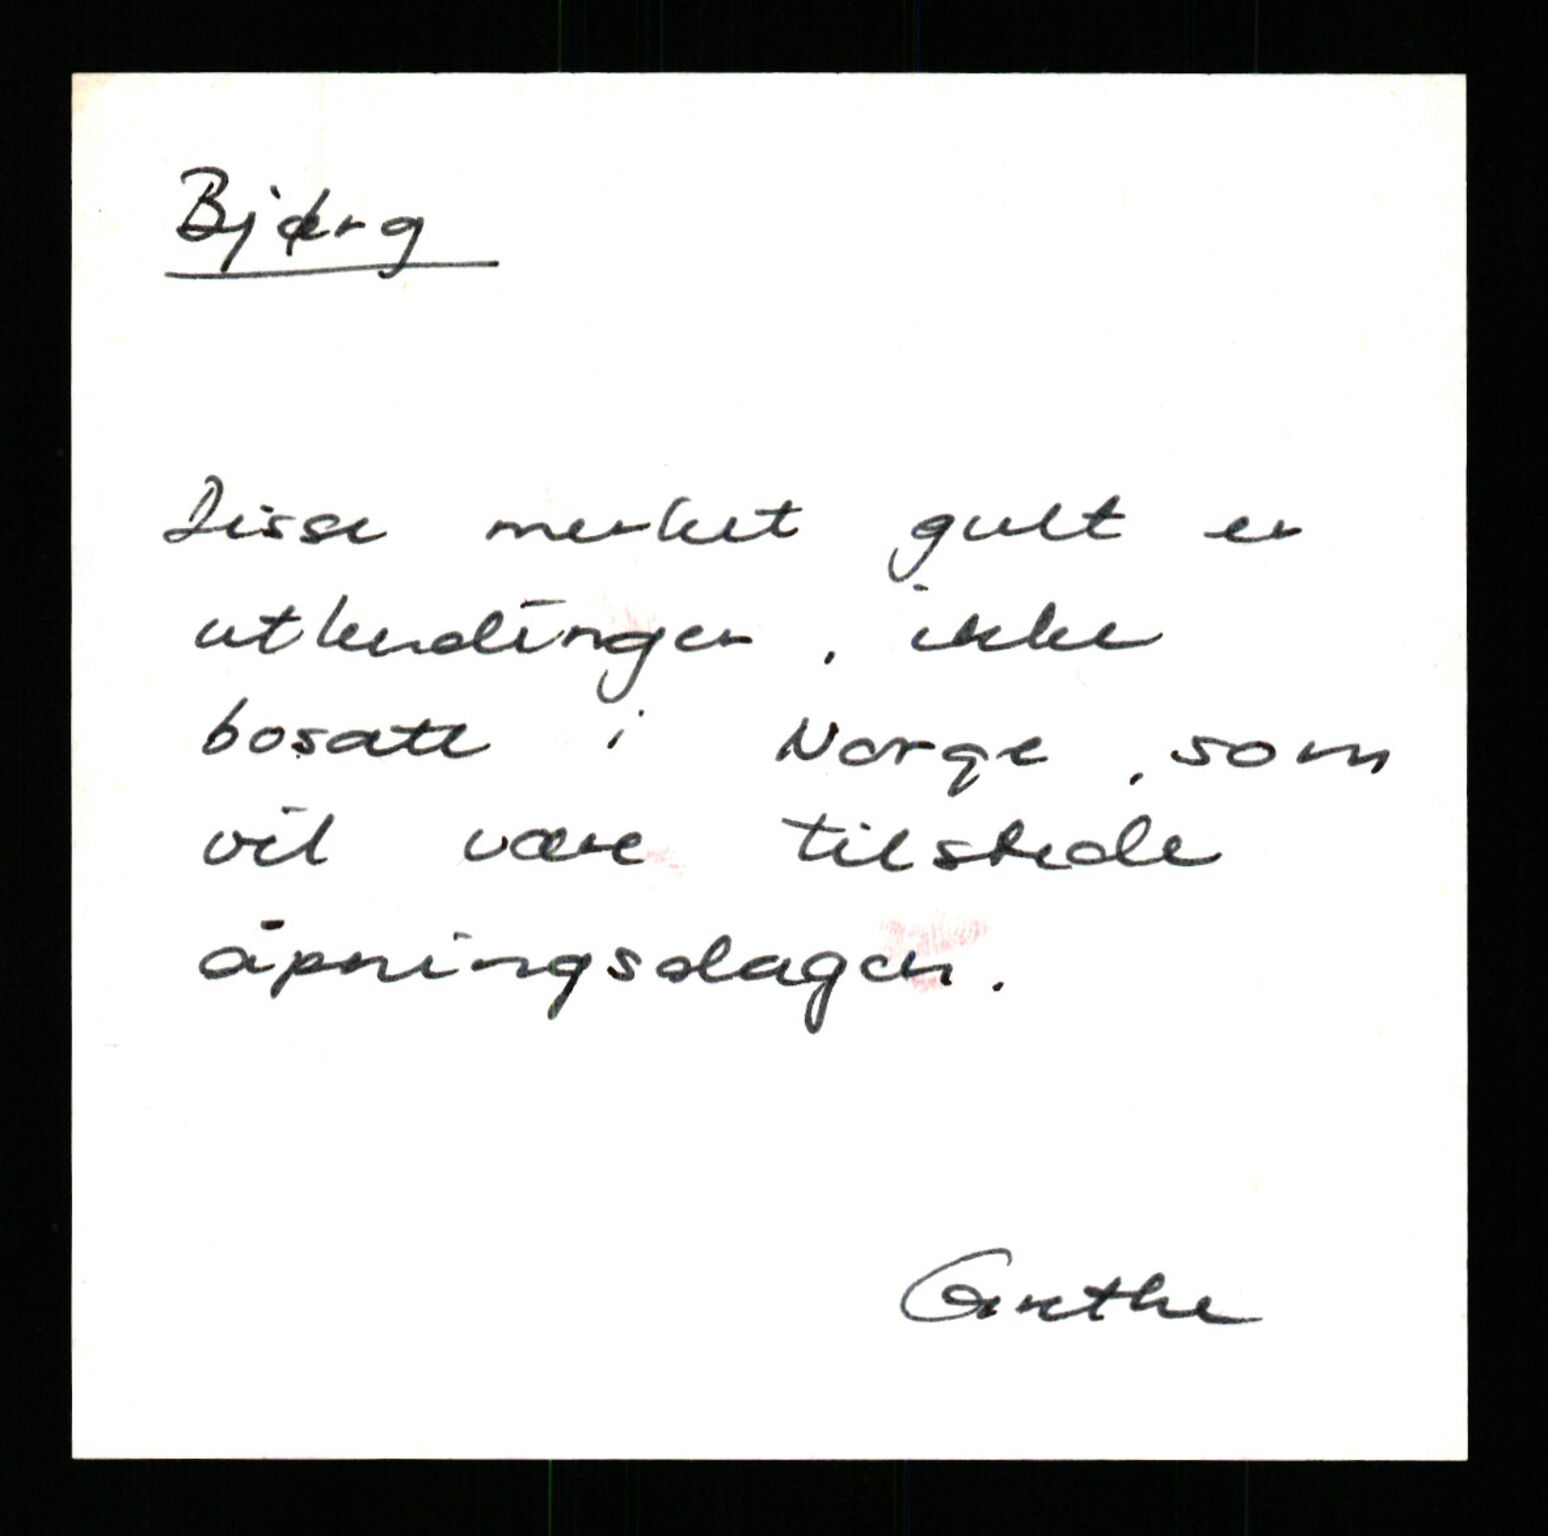 Bjørg
Disse merket gult er
utlendinger, ikke
bosatt i Norge, som
vil være tilstede
åpningsdagen.
Grethe